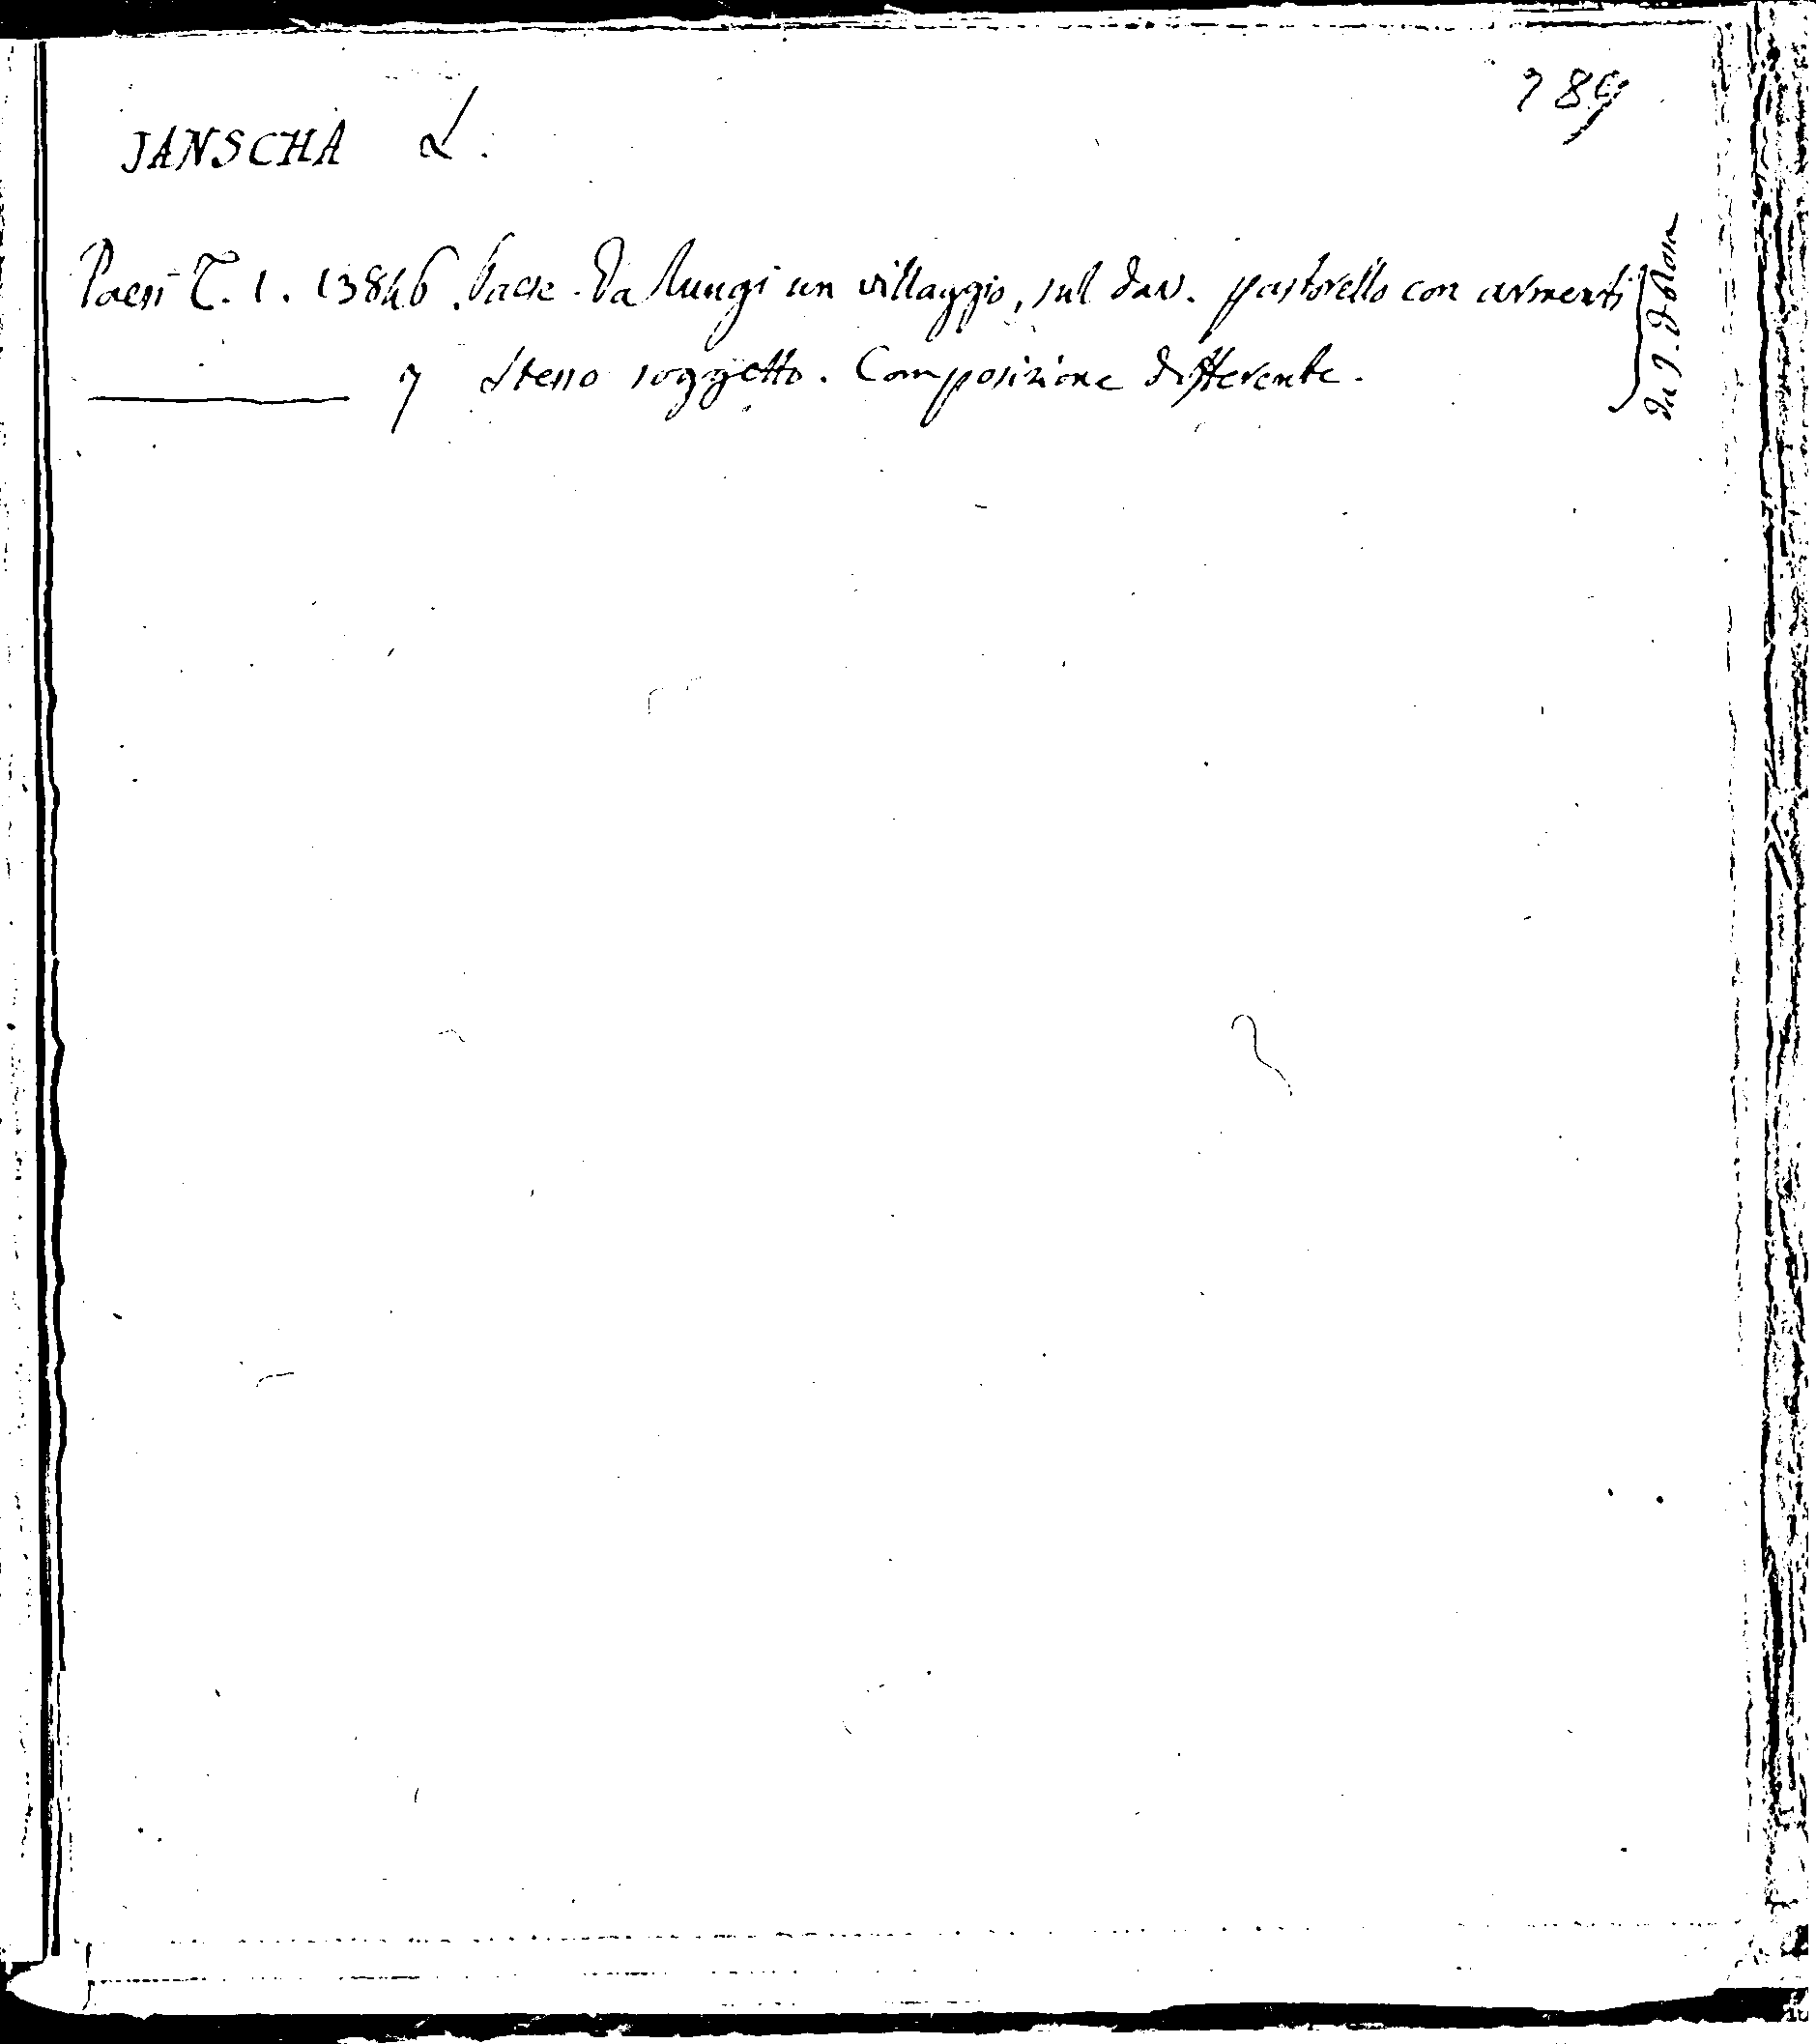 789
JANSCHA L.
Paesi T. 1. 13846. Paese. Da lungi un villaggio, sul dav. pastorello con armenti
7 Stesso soggetto. Composizione differente.